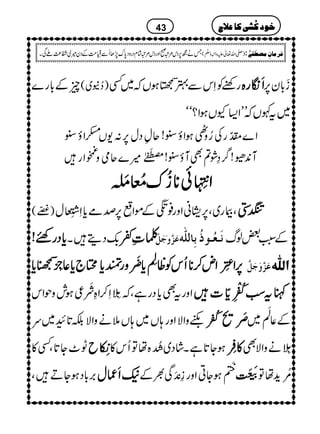 خود کشی کا علاج
43
زبان پر انگارہ رکھنے کو اس سے بہتر سمجھتا ہوں کہ میں کسی (دنیوی) چیز کے بارے
میں کہوں کہ ’’ایسا کیوں ہوا؟‘‘
اے مقدر کی روٹھی ہواؤ سنو! حالِ دل پر نہ یوں مسکراؤ سنو
آندھیو! گردشو تم بھی آؤ سنو! مصطفےٰ میرے حامی و غمخوار ہیں
انتہائی نازک معاملہ
تنگدستی، بیماری، پریشانی اور فوتگی کے مواقع پر صدمے یا اشتعال (غصے)
کے سبب بعض لوگ نعوذ باللہ عزوجل کلماتِ کفر بک دیتے ہیں۔ یاد رکھئے!
اللہ عزوجل پر اعتراض کرنا اُس کو ظالم یا ضرورت مند یا محتاج یا عاجز سمجھنا یا
کہنا یہ سب کفریات ہیں اور یہ بھی یاد رہے، بلا اکراہ شرعی ہوش و حواس
کے عالم میں صریح کفر بکنے والا اور ہاں میں ہاں ملانے والا بلکہ تائید میں سر
ہلانے والا بھی کافر ہو جاتا ہے۔ شادی شدہ تھا تو اُس کا نکاح ٹوٹ جاتا، کسی کا
مُرید تھا تو بیعت ختم ہو جاتی اور زندگی بھر کے نیک اعمال برباد ہو جاتے ہیں،